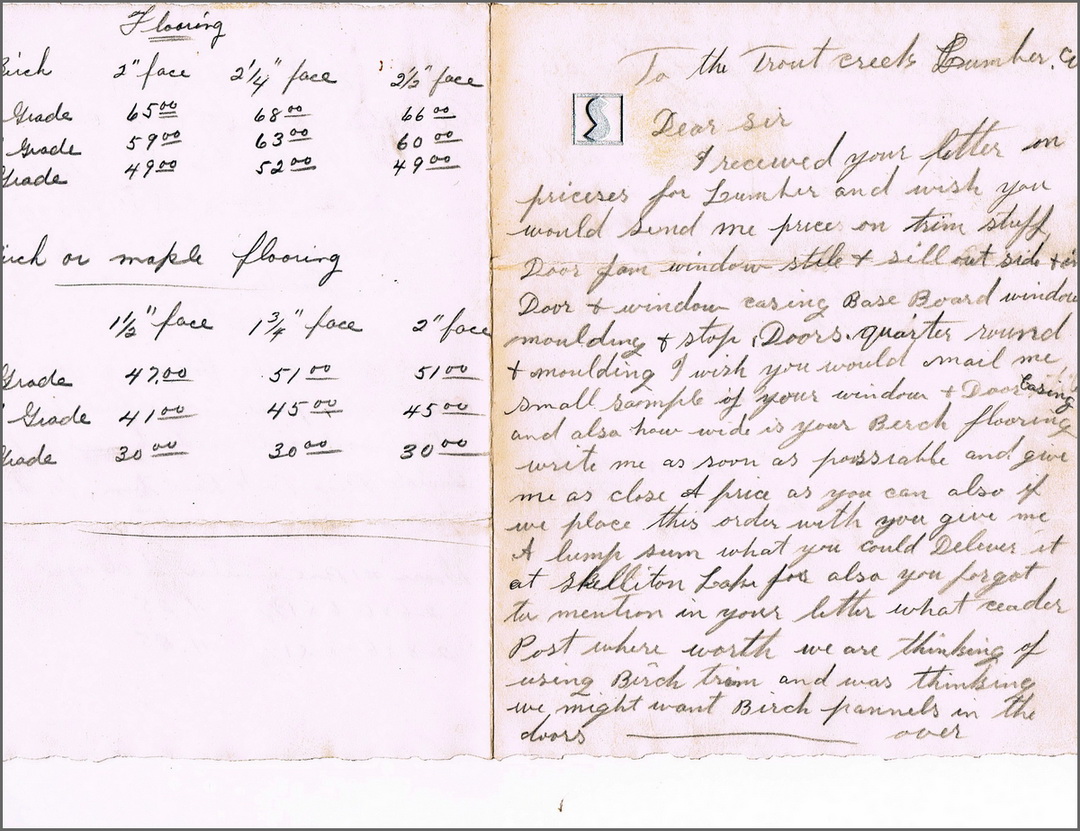 Flooring
Birch 2" face 2¼" face 2½" face
Grade 65 00 68 00 66 00
Grade 59 00 63 00 60 00
Grade 49 00 52 00 49 00
or maple flooring
1½" face 1¾" face 2" face
Grade 47.00 51 00 51 00
Grade 41 00 45 00 45 00
Grade 30 00 30 00 30 00
To the Trout creek Lumber. Co
S
Dear Sir
I received your letter on
priceses for Lumber and wish you
would send me prices on trim stuff
Door Jam window stile + sill out side + in
Door + window casing Base Board window
moulding + stop, Doors. quarter round
+ moulding I wish you would mail me
small sample of your window + Door Casing
and also how wide is your Berch flooring
write me as soon as possiable and give
me as close A price as you can also if
we place this order with you give me
A lump sum what you could Deliver it
at Skelliton Lake for also you forgot
to mention in your letter what ceader
Post where worth we are thinking of
using Birch trim and was thinking
we might want Birch pannels in the
doors over